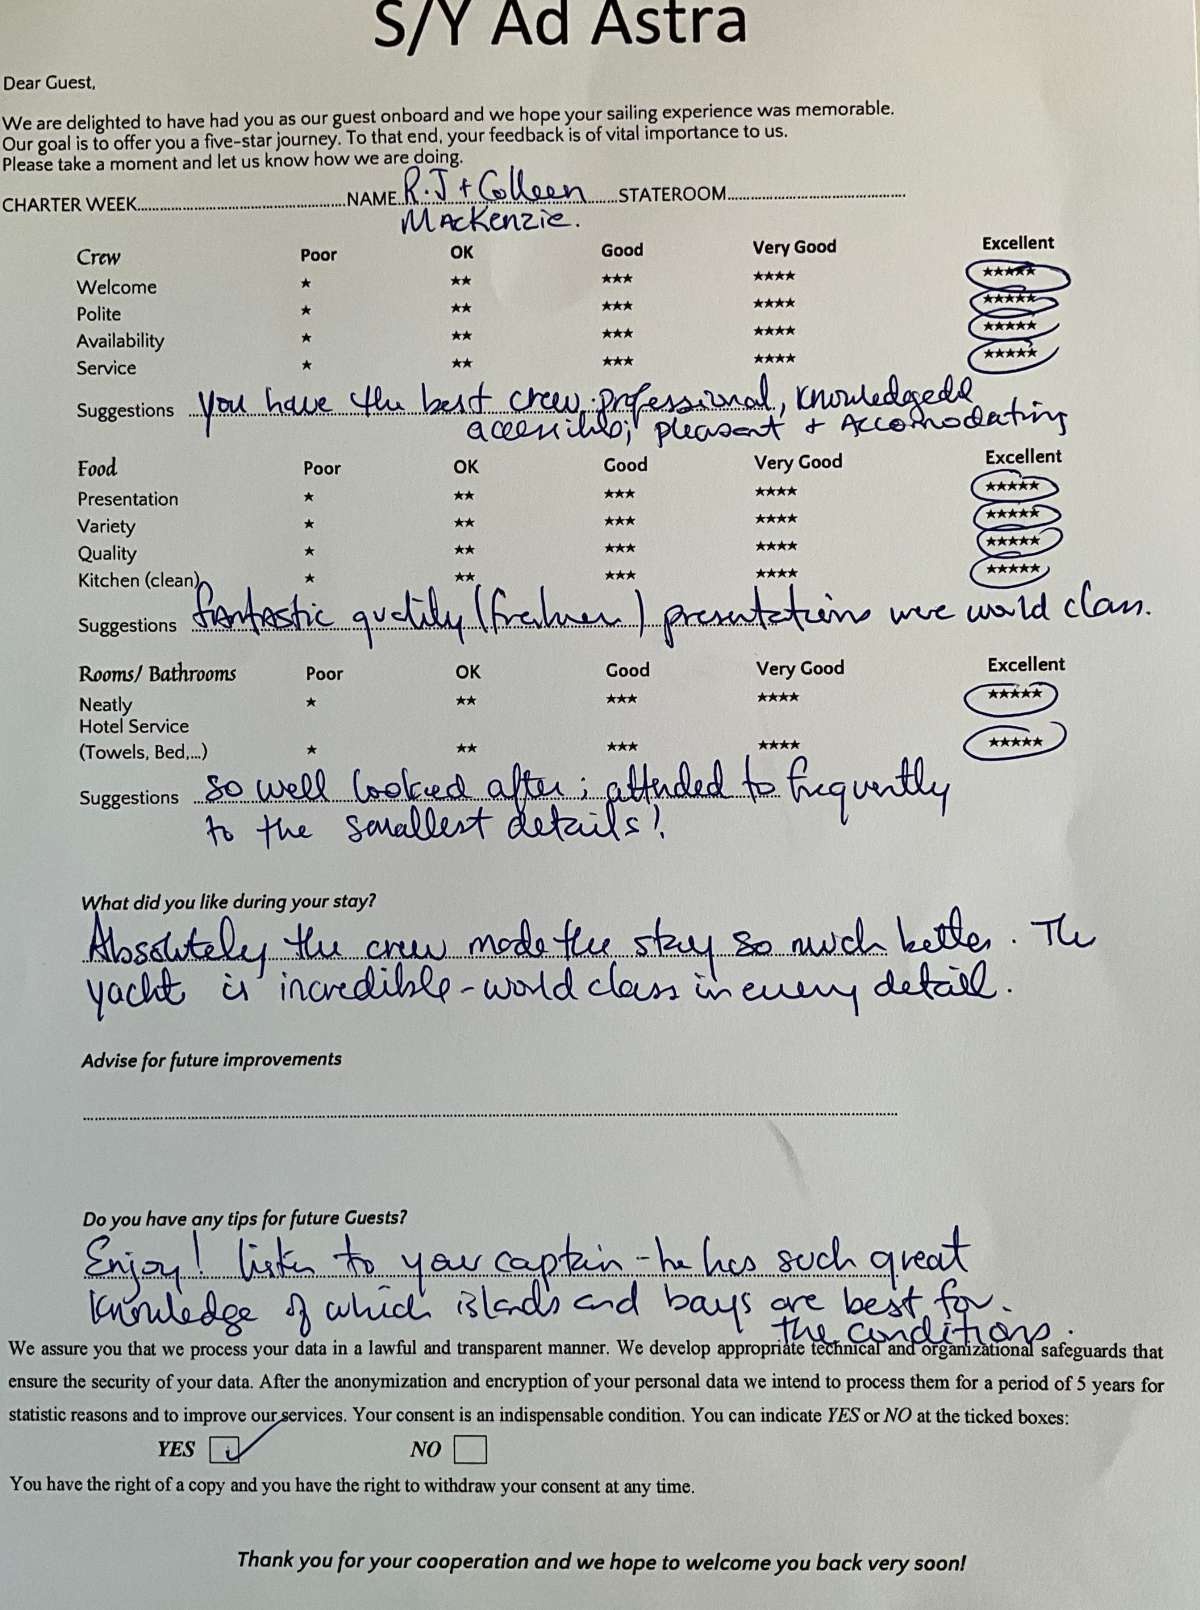 S/Y Ad Astra
Dear Guest,
We are delighted to have had you as our guest onboard and we hope your sailing experience was memorable.
Our goal is to offer you a five-star journey. To that end, your feedback is of vital importance to us.
Please take a moment and let us know how we are doing.
CHARTER WEEK.......... NAME. R.J + Colleen ......STATEROOM..........
MacKenzie.
Crew Poor OK Good Very Good Excellent
Welcome ★ ★★ ★★★ ★★★★ ★★★★★
Polite ★ ★★ ★★★ ★★★★ ★★★★★
Availability ★ ★★ ★★★ ★★★★ ★★★★★
Service ★ ★★ ★★★ ★★★★ ★★★★★
Suggestions You have the best crew. professional,
pleasant + Accomodating
Food Poor OK Good Very Good Excellent
Presentation ★ ★★ ★★★ ★★★★ ★★★★★
Variety ★ ★★ ★★★ ★★★★ ★★★★★
Quality ★ ★★ ★★★ ★★★★ ★★★★★
Kitchen (clean) ★ ★★ ★★★ ★★★★ ★★★★★
Suggestions fantastic quality presentations were world class.
Rooms/ Bathrooms Poor OK Good Very Good Excellent
Neatly ★ ★★ ★★★ ★★★★ ★★★★★
Hotel Service
(Towels, Bed,...) ★ ★★ ★★★ ★★★★ ★★★★★
Suggestions So well looked after; attended to frequently
to the smallest details!
What did you like during your stay?
Absolutely the crew made the stay so much better. The
yacht is incredible - world class in every detail.
Advise for future improvements
Do you have any tips for future Guests?
Enjoy! listen to your captain - he has such great
knowledge of which islands and bays are best for
the conditions.
We assure you that we process your data in a lawful and transparent manner. We develop appropriate technical and organizational safeguards that
ensure the security of your data. After the anonymization and encryption of your personal data we intend to process them for a period of 5 years for
statistic reasons and to improve our services. Your consent is an indispensable condition. You can indicate YES or NO at the ticked boxes:
YES NO
You have the right of a copy and you have the right to withdraw your consent at any time.
Thank you for your cooperation and we hope to welcome you back very soon!